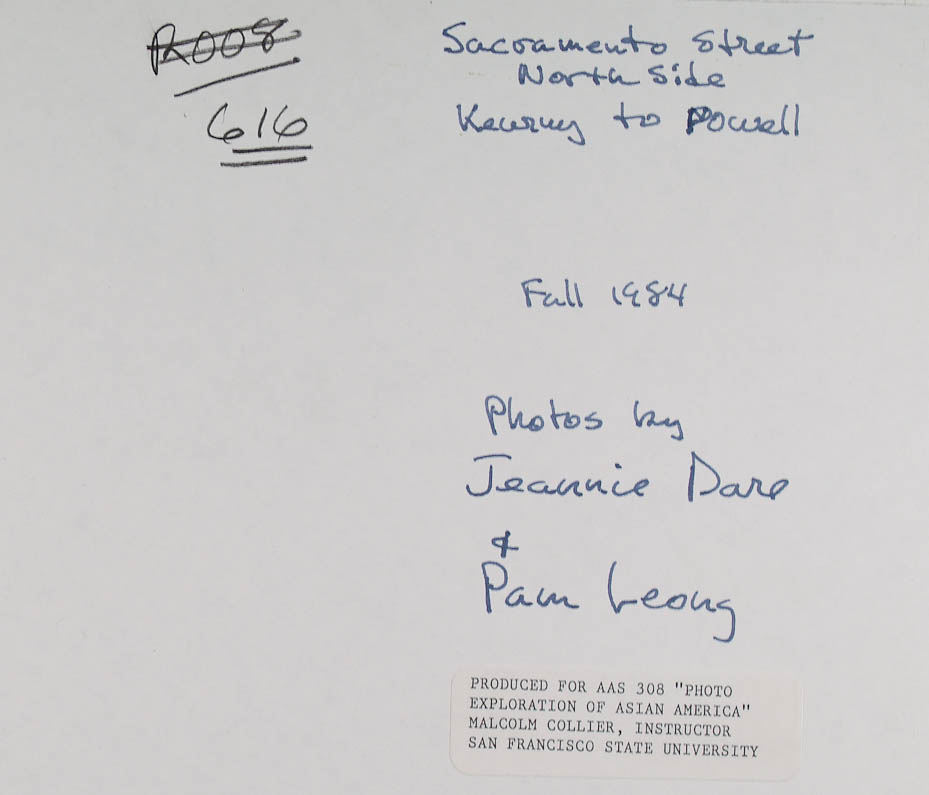 R008
616
Sacramento Street
North Side
Kearny to Powell
Fall 1984
Photos by
Jeannie Dare
&
Pam Leong
PRODUCED FOR AAS 308 "PHOTO
EXPLORATION OF ASIAN AMERICA"
MALCOLM COLLIER, INSTRUCTOR
SAN FRANCISCO STATE UNIVERSITY